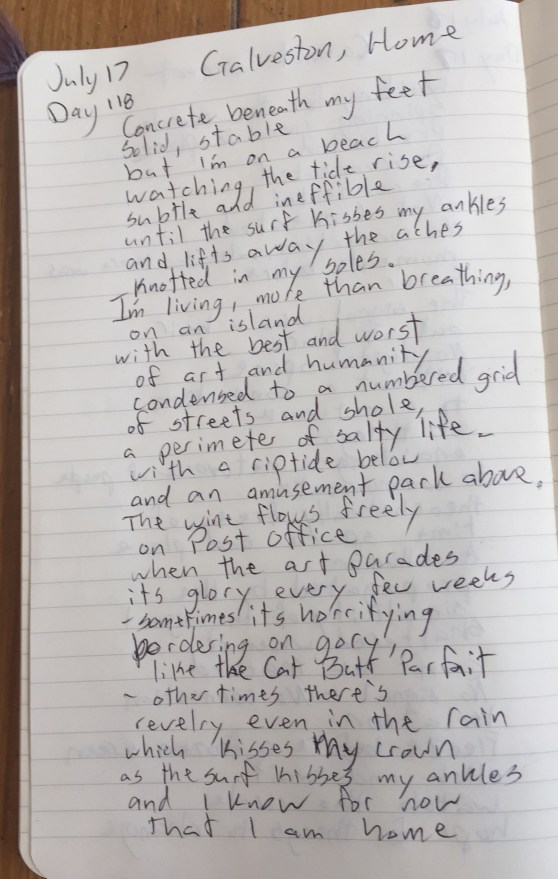 July 17
Galveston, Home
Day 118
Concrete beneath my feet
Solid, stable
but I'm on a beach
watching the tide rise,
subtle and ineffible
until the surf kisses my ankles
and lifts away the aches
knotted in my soles.
I'm living, more than breathing,
on an island
with the best and worst
of art and humanity
condensed to a numbered grid
of streets and shole,
a perimeter of salty life -
with a riptide below
and an amusement park above.
The wine flows freely
on Post Office
when the art parades
its glory every few weeks
- sometimes its horrifying
bordering on gory,
like the Cat Butt Parfait
- other times there's
revelry even in the rain
which kisses my crown
as the surf kisses my ankles
and I know for now
that I am home